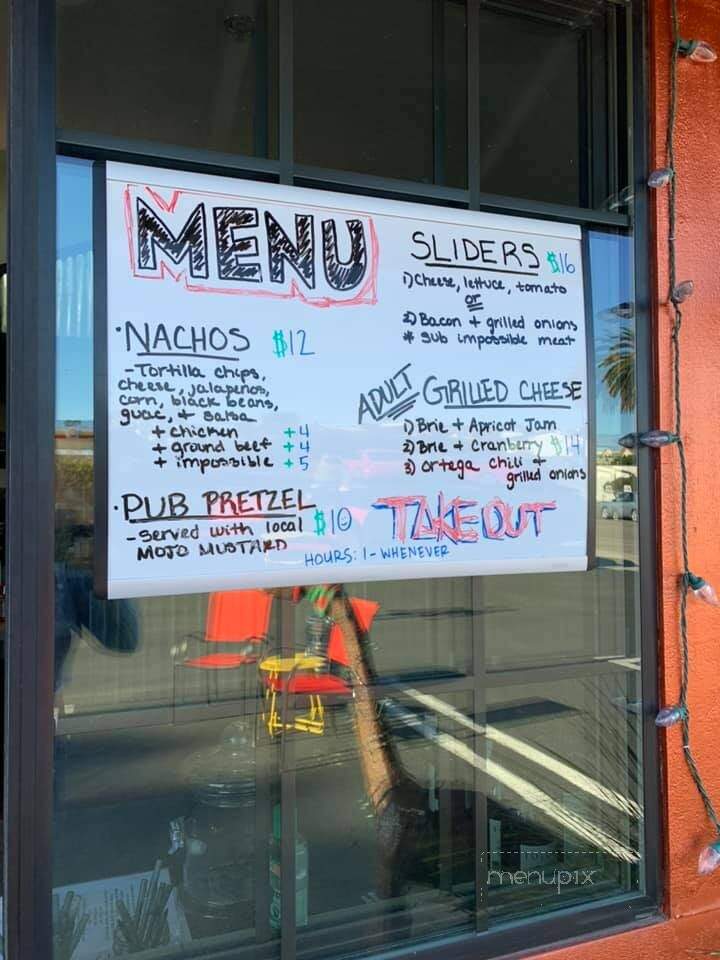 MENU
·NACHOS $12
-Tortilla chips,
cheese, jalapeños,
corn, black beans,
guac, + salsa
+ chicken +4
+ ground beef +4
+ impossible +5
·PUB PRETZEL $10
-served with local
MOJO MUSTARD
SLIDERS $16
1) Cheese, lettuce, tomato
or
2) Bacon + grilled onions
* sub impossible meat
ADULT GRILLED CHEESE
1) Brie + Apricot Jam
2) Brie + Cranberry $14
3) ortega chili +
grilled onions
TAKE OUT
HOURS: 1 - WHENEVER
menupix